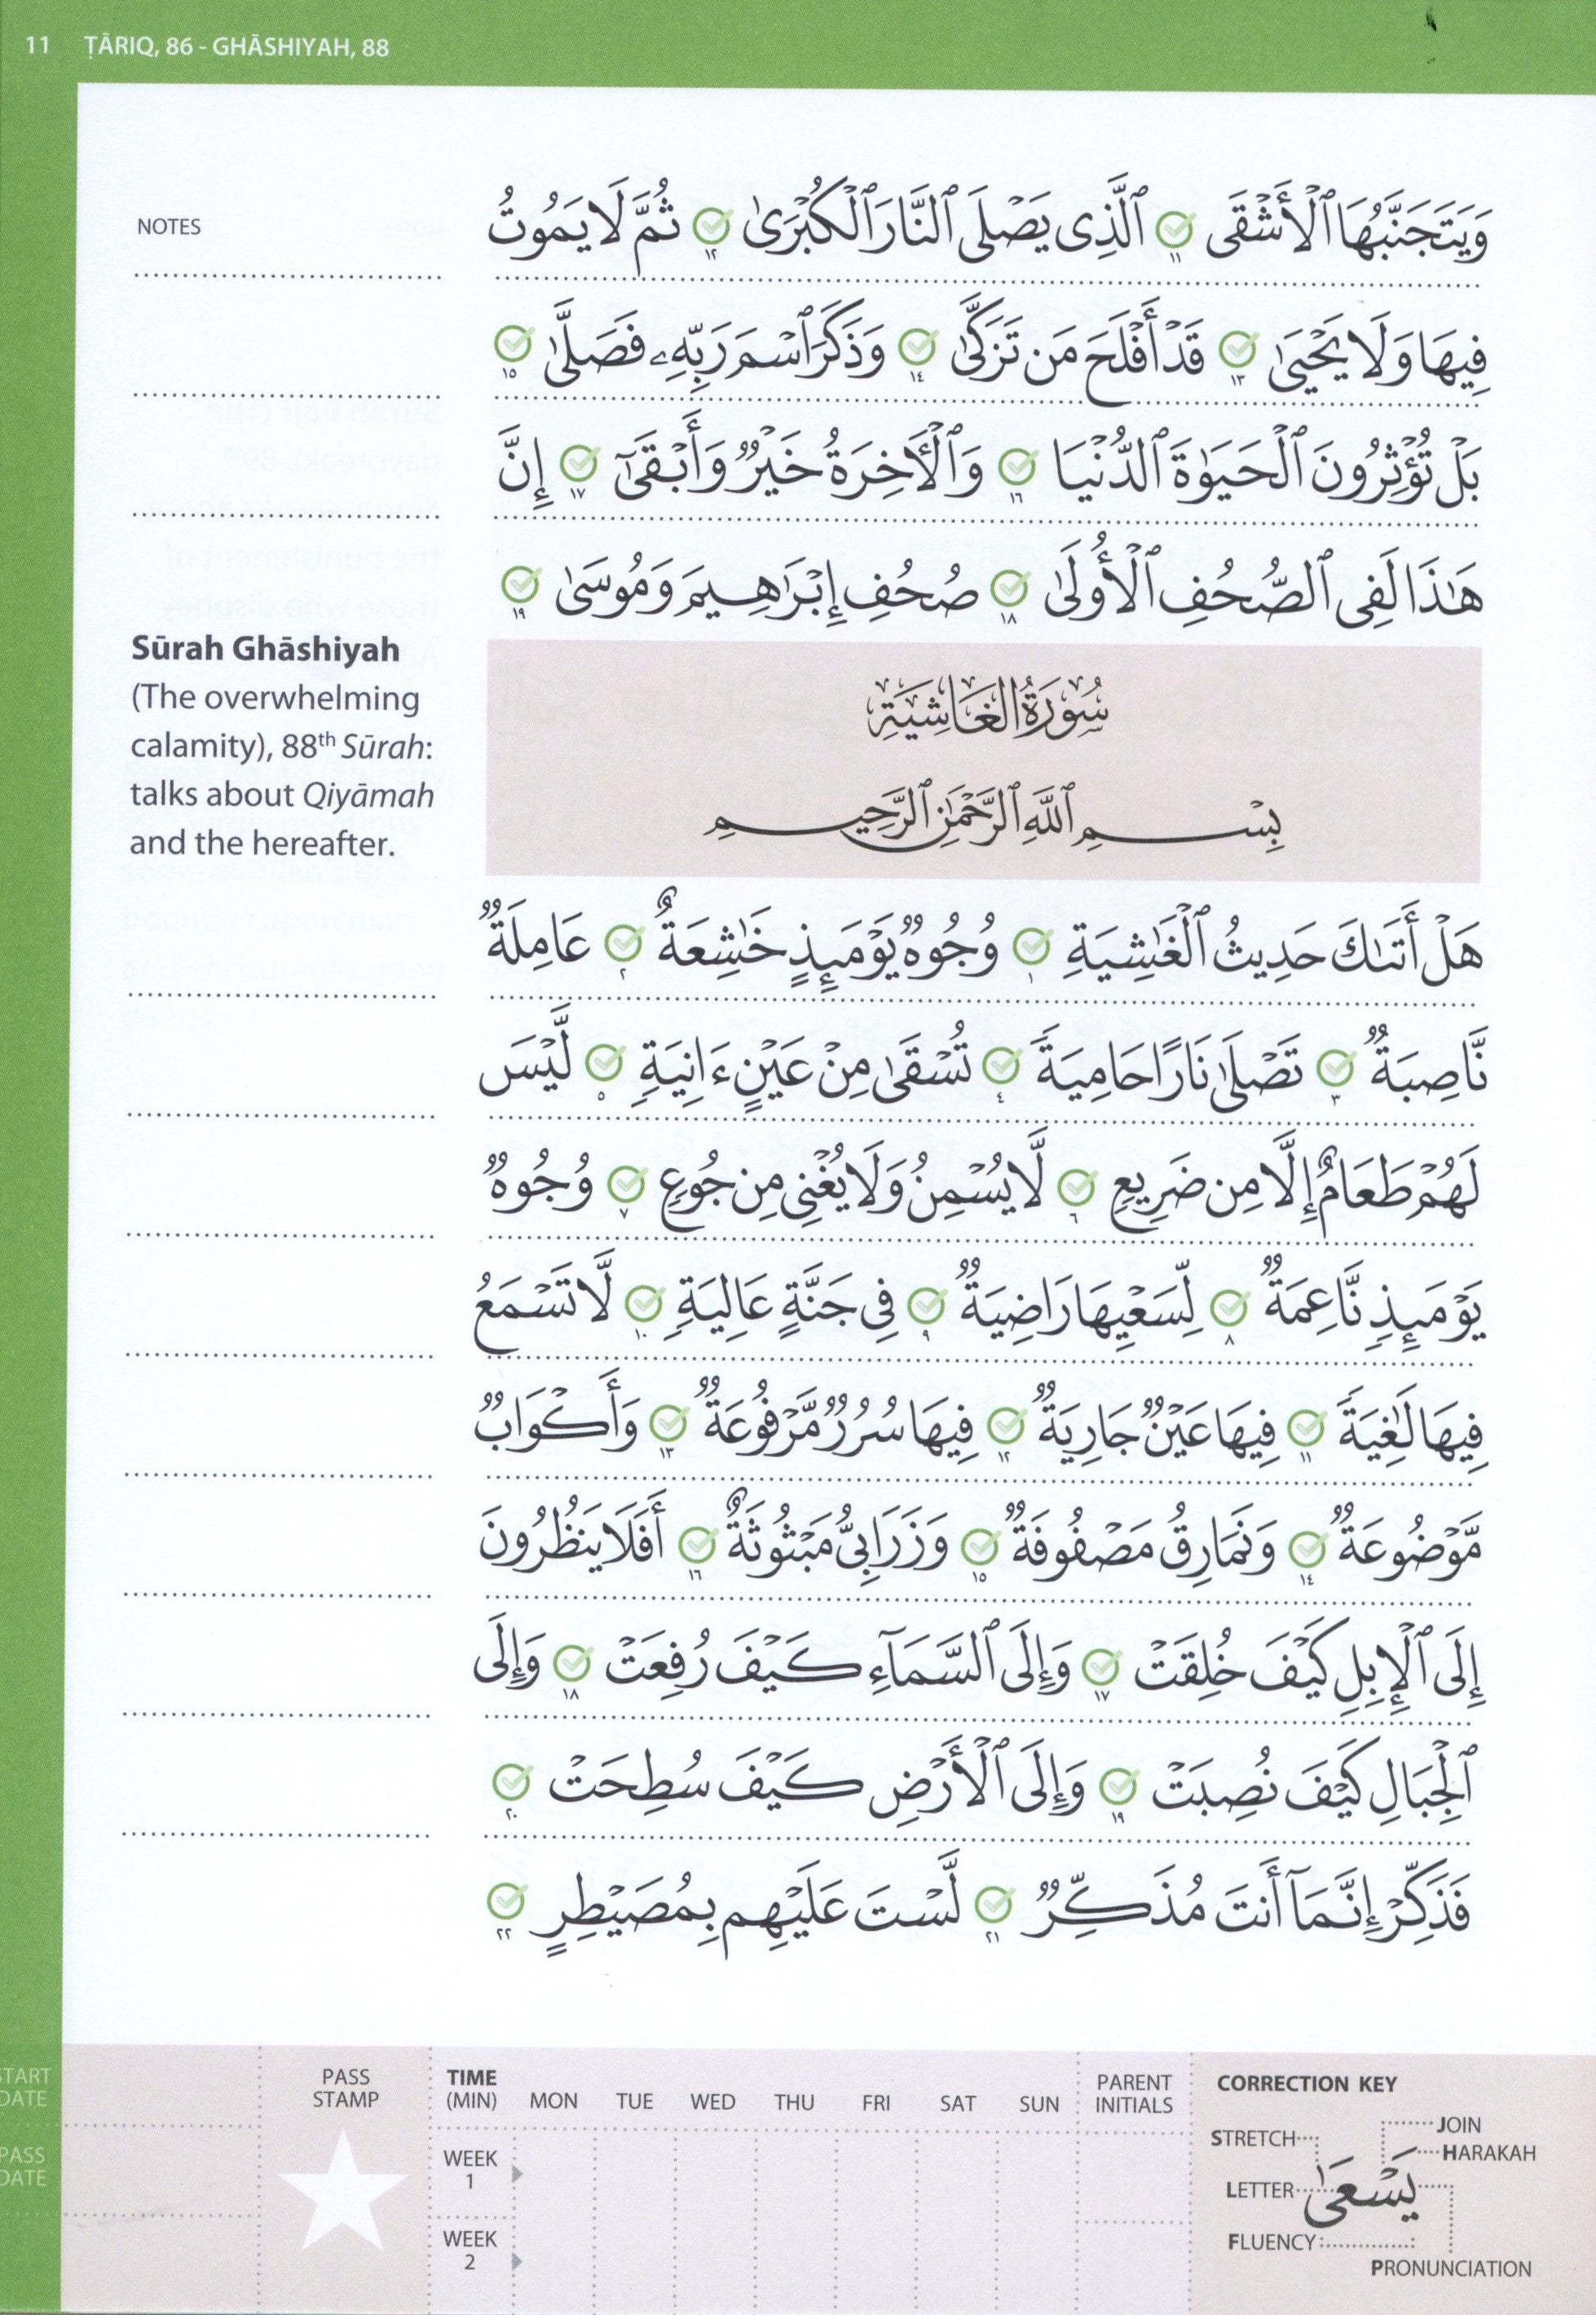 11 ṬĀRIQ, 86 - GHĀSHIYAH, 88
NOTES
وَيَتَجَنَّبُهَا ٱلْأَشْقَى ١١ ٱلَّذِى يَصْلَى ٱلنَّارَ ٱلْكُبْرَىٰ ١٢ ثُمَّ لَا يَمُوتُ
فِيهَا وَلَا يَحْيَىٰ ١٣ قَدْ أَفْلَحَ مَن تَزَكَّىٰ ١٤ وَذَكَرَ ٱسْمَ رَبِّهِۦ فَصَلَّىٰ ١٥
بَلْ تُؤْثِرُونَ ٱلْحَيَوٰةَ ٱلدُّنْيَا ١٦ وَٱلْأَخِرَةُ خَيْرٌ وَأَبْقَىٰٓ ١٧ إِنَّ
هَٰذَا لَفِى ٱلصُّحُفِ ٱلْأُولَىٰ ١٨ صُحُفِ إِبْرَٰهِيمَ وَمُوسَىٰ ١٩
Sūrah Ghāshiyah
(The overwhelming
calamity), 88th Sūrah:
talks about Qiyāmah
and the hereafter.
سُوْرَةُ الغَاشِيَةِ
بِسْمِ ٱللَّهِ ٱلرَّحْمَٰنِ ٱلرَّحِيمِ
هَلْ أَتَىٰكَ حَدِيثُ ٱلْغَٰشِيَةِ ١ وُجُوهٌ يَوْمَئِذٍ خَٰشِعَةٌ ٢ عَامِلَةٌ
نَّاصِبَةٌ ٣ تَصْلَىٰ نَارًا حَامِيَةً ٤ تُسْقَىٰ مِنْ عَيْنٍ ءَانِيَةٍ ٥ لَّيْسَ
لَهُمْ طَعَامٌ إِلَّا مِن ضَرِيعٍ ٦ لَّا يُسْمِنُ وَلَا يُغْنِى مِن جُوعٍ ٧ وُجُوهٌ
يَوْمَئِذٍ نَّاعِمَةٌ ٨ لِّسَعْيِهَا رَاضِيَةٌ ٩ فِى جَنَّةٍ عَالِيَةٍ ١٠ لَّا تَسْمَعُ
فِيهَا لَٰغِيَةً ١١ فِيهَا عَيْنٌ جَارِيَةٌ ١٢ فِيهَا سُرُرٌ مَّرْفُوعَةٌ ١٣ وَأَكْوَابٌ
مَّوْضُوعَةٌ ١٤ وَنَمَارِقُ مَصْفُوفَةٌ ١٥ وَزَرَابِىُّ مَبْثُوثَةٌ ١٦ أَفَلَا يَنظُرُونَ
إِلَى ٱلْإِبِلِ كَيْفَ خُلِقَتْ ١٧ وَإِلَى ٱلسَّمَآءِ كَيْفَ رُفِعَتْ ١٨ وَإِلَى
ٱلْجِبَالِ كَيْفَ نُصِبَتْ ١٩ وَإِلَى ٱلْأَرْضِ كَيْفَ سُطِحَتْ ٢٠
فَذَكِّرْ إِنَّمَآ أَنتَ مُذَكِّرٌ ٢١ لَّسْتَ عَلَيْهِم بِمُصَيْطِرٍ ٢٢
START
DATE
PASS
DATE
PASS
STAMP
TIME
(MIN) MON TUE WED THU FRI SAT SUN
PARENT
INITIALS
WEEK
1
WEEK
2
CORRECTION KEY
JOIN
STRETCH
HARAKAH
LETTER
يَسْعَىٰ
FLUENCY
PRONUNCIATION